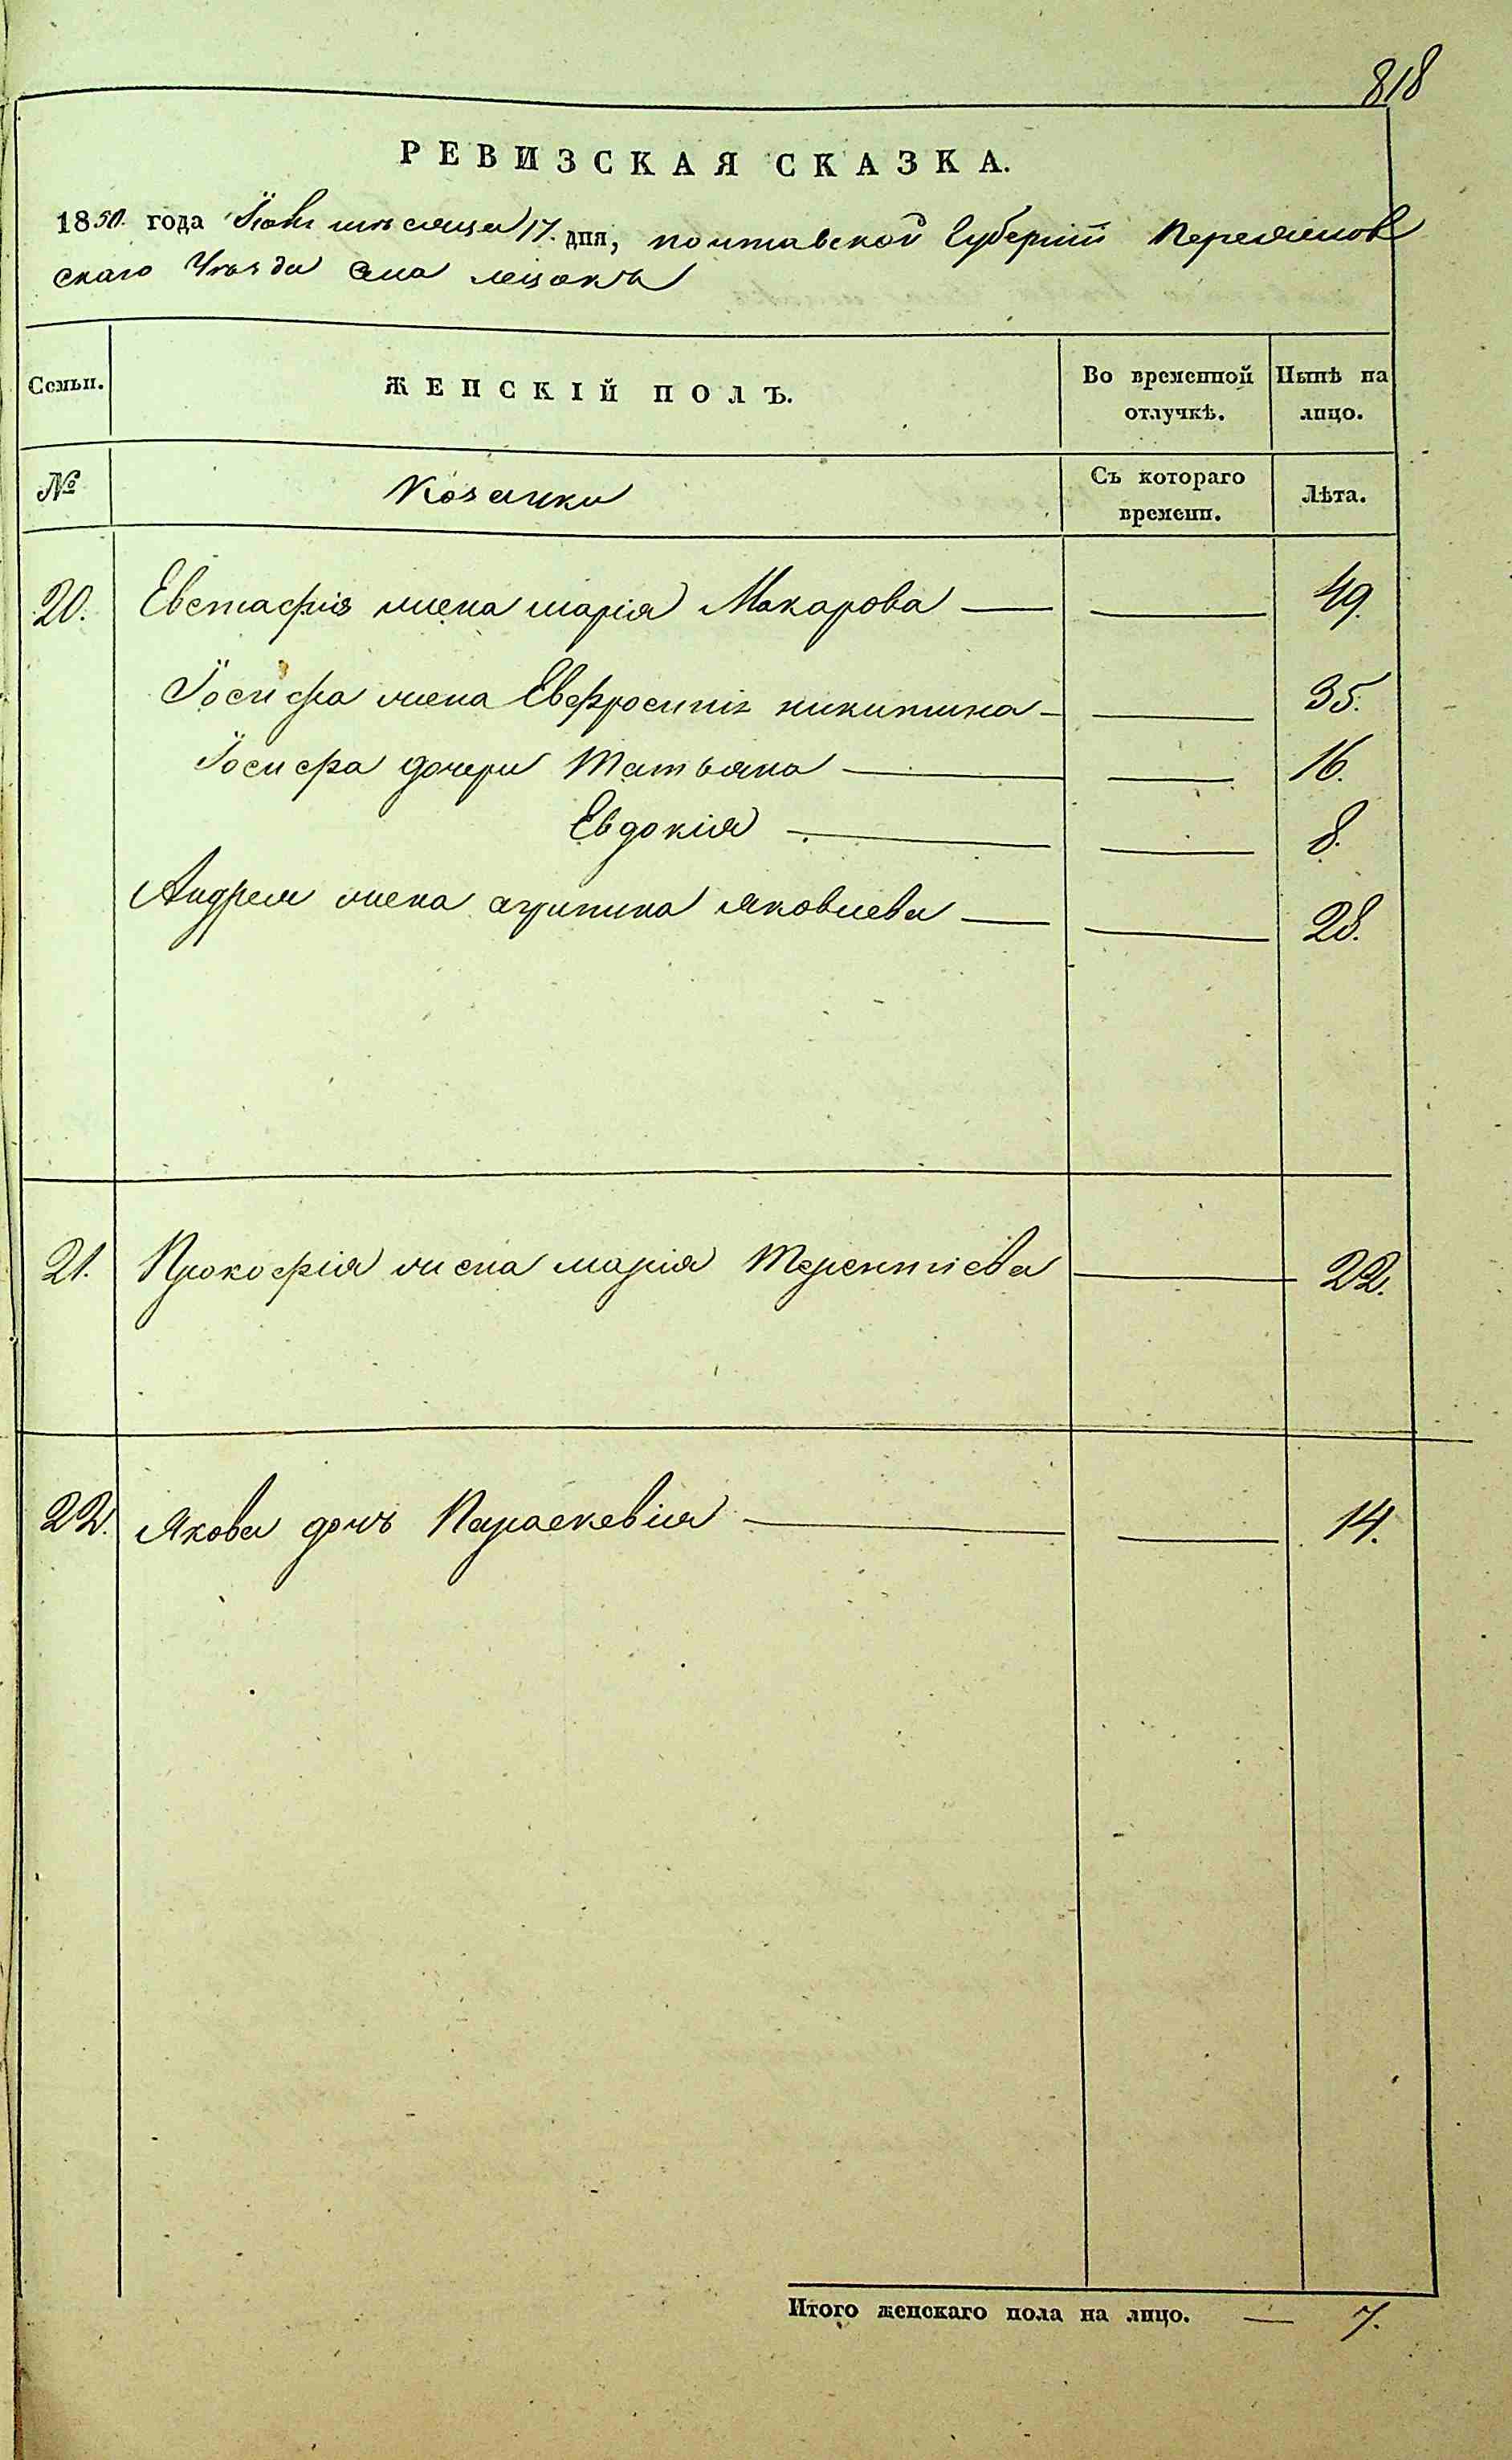 818
РЕВИЗСКАЯ СКАЗКА.
1850 года мѣсяца 17. дня, полтавской Губерніи Переяслов
скаго Уѣзда Села лецокъ
Семьи. ЖЕНСКІЙ ПОЛЪ. Во временной отлучкѣ. Нынѣ на лицо.
№ Козачки Съ котораго времени. Лѣта.
20. Евстафія жена марія Макарова — — 49.
Іосифа жена Евфросинія никитина — — 35.
Іосифа дочери Татьяна — — 16.
Евдокія — — 8.
Андрея жена агрипина яковлева — — 28.
21. Прокофія жена марія Терентіева — 22.
22. Якова дочь Параскевія — — 14.
Итого женскаго пола на лицо. — 7.